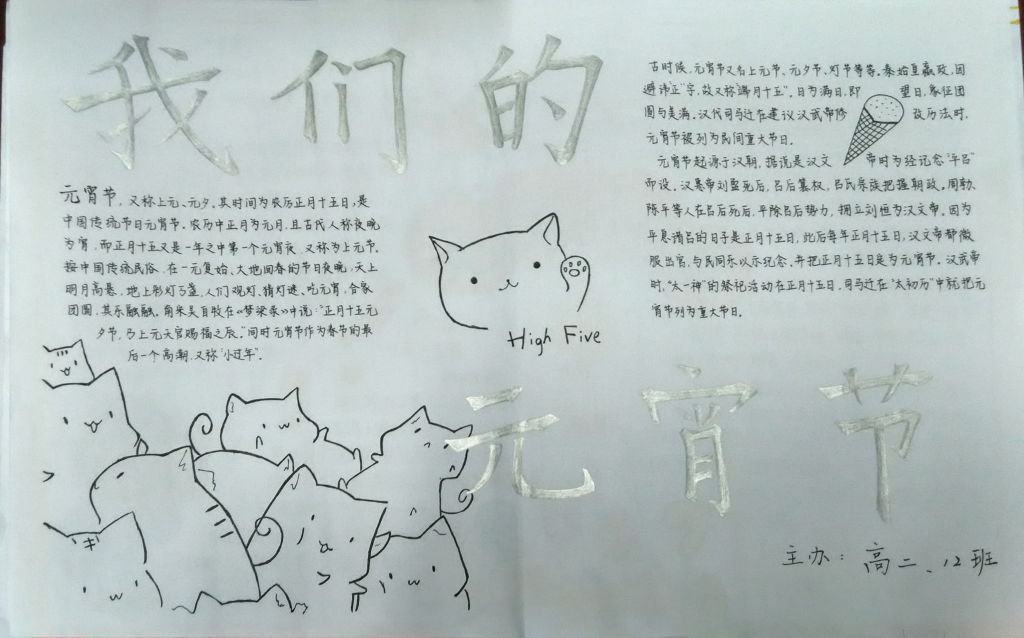 我们的
元宵节，又称上元、元夕。其时间为农历正月十五日，是
中国传统节日元宵节。农历中正月为元月，且古代人称夜晚
为宵，而正月十五又是一年之中第一个元宵夜，又称为上元节。
按中国传统民俗，在一元复始、大地回春的节日夜晚，天上
明月高悬，地上彩灯万盏，人们观灯、猜灯谜、吃元宵，合家
团圆，其乐融融。南宋吴自牧在《梦梁录》中说："正月十五元
夕节，乃上元天官赐福之辰。"同时元宵节作为春节的最
后一个高潮，又称"小过年"。
古时候，元宵节又名上元节、元夕节、灯节等等。秦始皇嬴政，因
避讳正"字，故又称端月十五"。日为满日，即 望日，象征团
圆与美满。汉代司马迁在建议汉武帝修 改历法时，
元宵节被列为民间重大节日。
元宵节起源于汉朝，据说是汉文 帝时为经记念"平吕"
而设。汉惠帝刘盈死后，吕后篡权，吕氏宗族把握朝政。周勃、
陈平等人在吕后死后，平除吕后势力，拥立刘恒为汉文帝。因为
平息诸吕的日子是正月十五日，此后每年正月十五日，汉文帝都微
服出宫，与民同乐以示纪念。并把正月十五日定为元宵节。汉武帝
时，"太一神"的祭祀活动在正月十五日，司马迁在"太初历"中就把元
宵节列为重大节日。
High Five
元宵节
主办：高二、12班